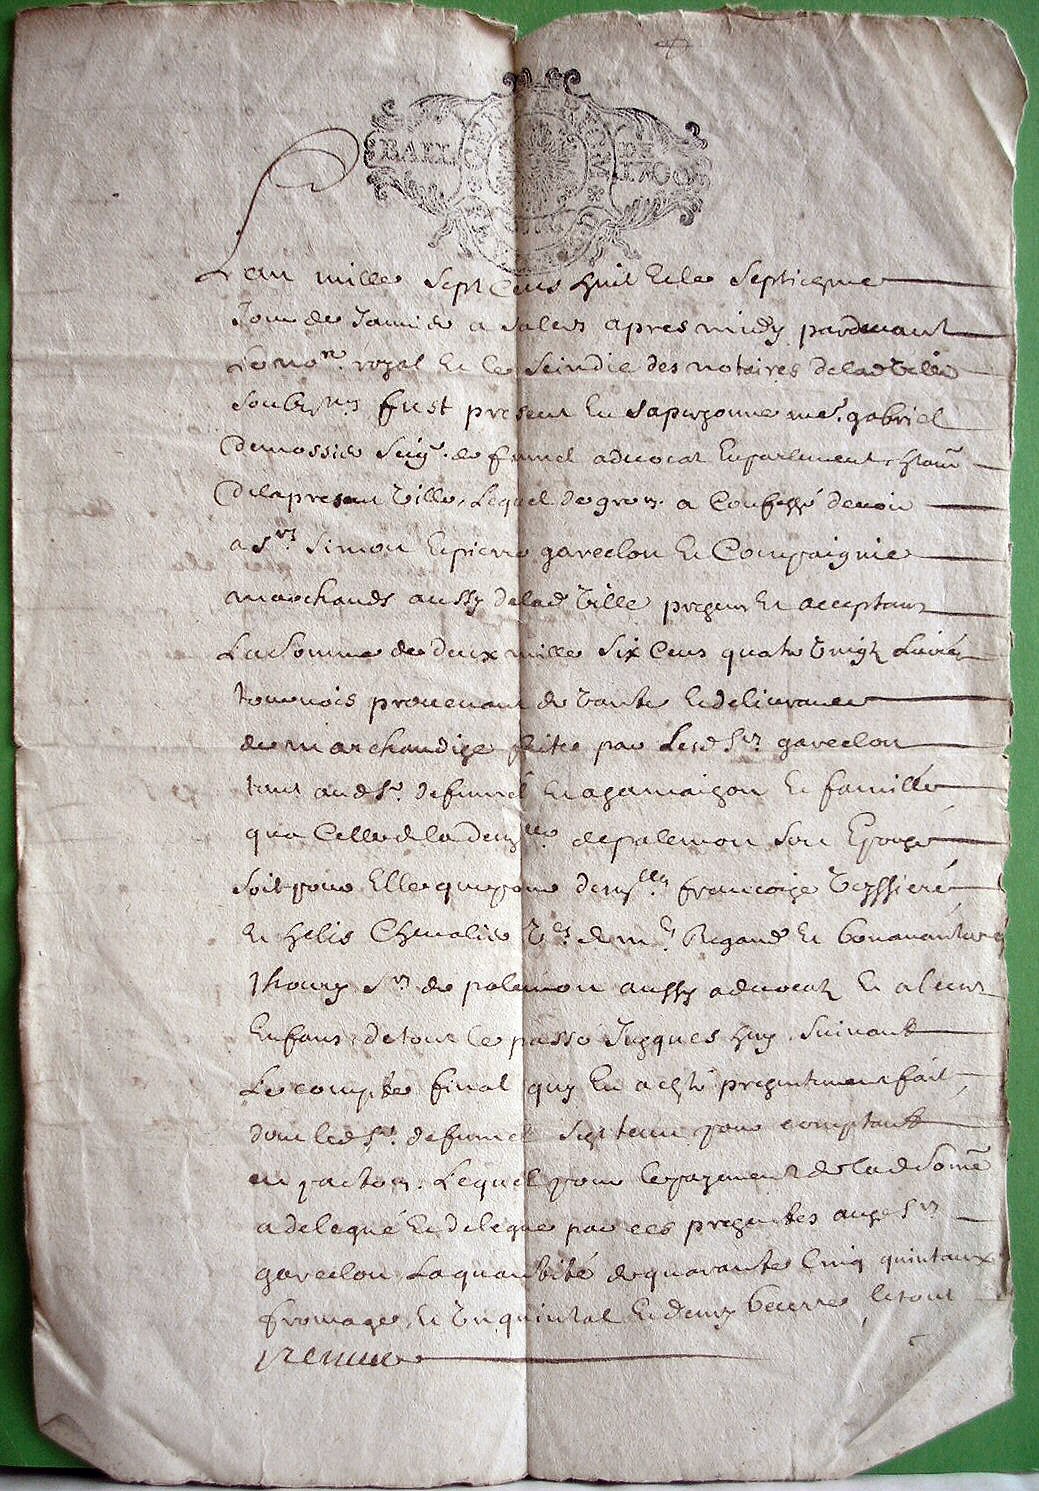 L'an mille sept cens huit et le septiesme
Jour de Janvier a Salers apres midy pardevant
le no.re royal et le scindic des notaires de lad ville
soubz.nes fust present en sa personne me. gabriel
demossier seig.r de fumel advocat en parlement
de la presant ville, Lequel de gre a confessé devoir
a Srs Simon et pierre et Compaignie
marchands aussy de lad ville presens et acceptans
La somme de deux mille six cens quatre vingt Livres
tournois provenant de vante et delivrance
de marchandise faite par Lesd Srs
tant aud Sr. de fumel et a sa maison et famille
que Celle de la dem.lle depalemon son Epouse
soit pour Elle que pour dem.lles francoise veyssiere
et helis Chevalier v.es de m.es Rigaud et bonavanture
Srs de palemon aussy advocatz et a leurs
Enfans, de tout le passé Jusques huy, suivant
Le compte final quy en a esté presentement fait,
dont led Sr. de fumel s'est tenu pour comptant
Lequel pour le payement de lad some
a delegué et delegue par ces presentes ausd Srs
La quantité de quarante Cinq quintaux
fromage, et un quintal et demy beurre, le tout